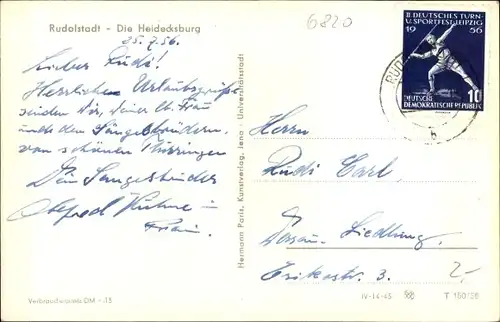 Rudolstadt - Die Heidecksburg
6820
25.7.56.
Lieber Rudi!
Herrlichen Urlaubsgrüße
senden Dir, deiner lb. Frau
und den Sangesbrüdern
vom schönen Thüringen
Dein Sangesbruder
Kühne u.
Frau.
Verbraucherpreis DM -.15
Hermann Paris, Kunstverlag, Jena - Universitätsstadt
II. DEUTSCHES TURN-
U. SPORTFEST LEIPZIG
19 56
10
DEUTSCHE
DEMOKRATISCHE REPUBLIK
RUDO
b
Herrn
Rudi Carl,
Dessau-Siedlung,
Erikastr. 3.
2,-
IV-14-45
T 160/56